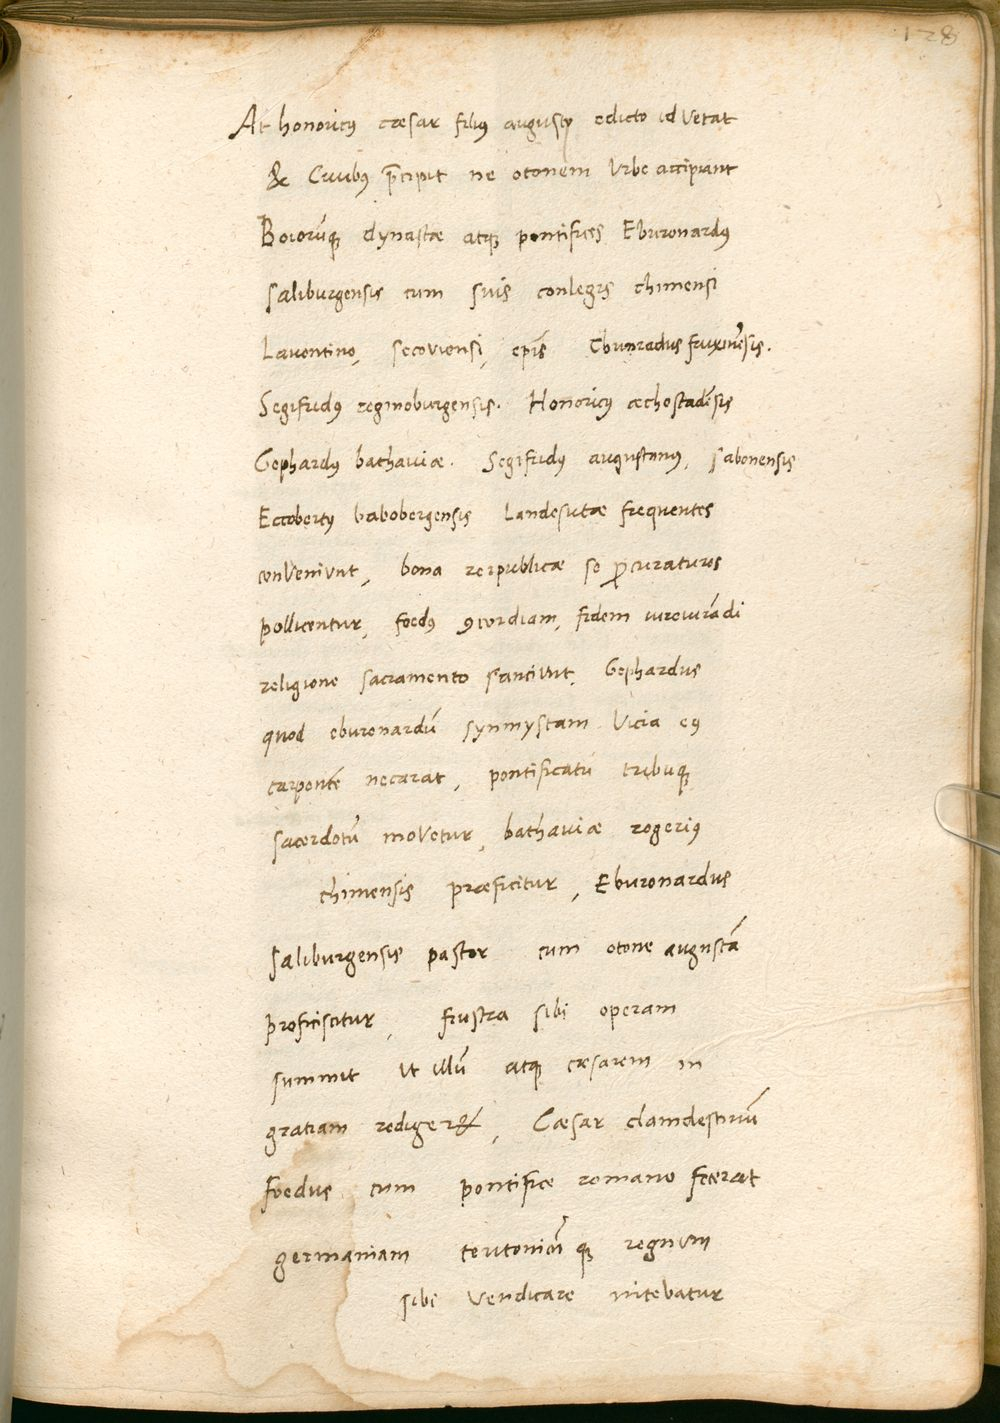 128
At honoricꝰ cæsar filiꝰ augustꝰ edicto id vetat
& Ciuibꝰ p̄cipit ne otonem Vrbe accipiant
Boiorūqꝫ dynastæ atqꝫ pontifices Eburonardꝰ
saliburgensis cum suis conlegis chimensi
Lauontino, secoviensi, ep̄is Chunradus fruxinēsis.
Segifridꝰ reginoburgensis. Honoricꝰ æchostadēsis
Gephardꝰ bathauiæ. Segifridꝰ augustanꝰ, sabonensis
Eccobertꝰ babobergensis Landesutæ frequentes
conveniunt, bona reipublicæ se ꝓcuraturos
pollicentur, foedꝰ ꝯcordiam, fidem iureiurādi
religione sacramento sanciunt, Gephardus
quod eburonardū synmystam Vicia eꝰ
carpontē necarat, pontificatū tribuqꝫ
sacerdotū movetur, bathauiæ rogeriꝰ
chimensis præficitur, Eburonardus
saliburgensis pastor cum otone augustā
proficiscitur, frustra sibi operam
summit Vt illū atqꝫ cæsarem in
gratiam rediger&, Cæsar clamdestinū
foedus cum pontifice romano fecerat
germaniam teutonicū qꝫ regnum
sibi vendicare nitebatur